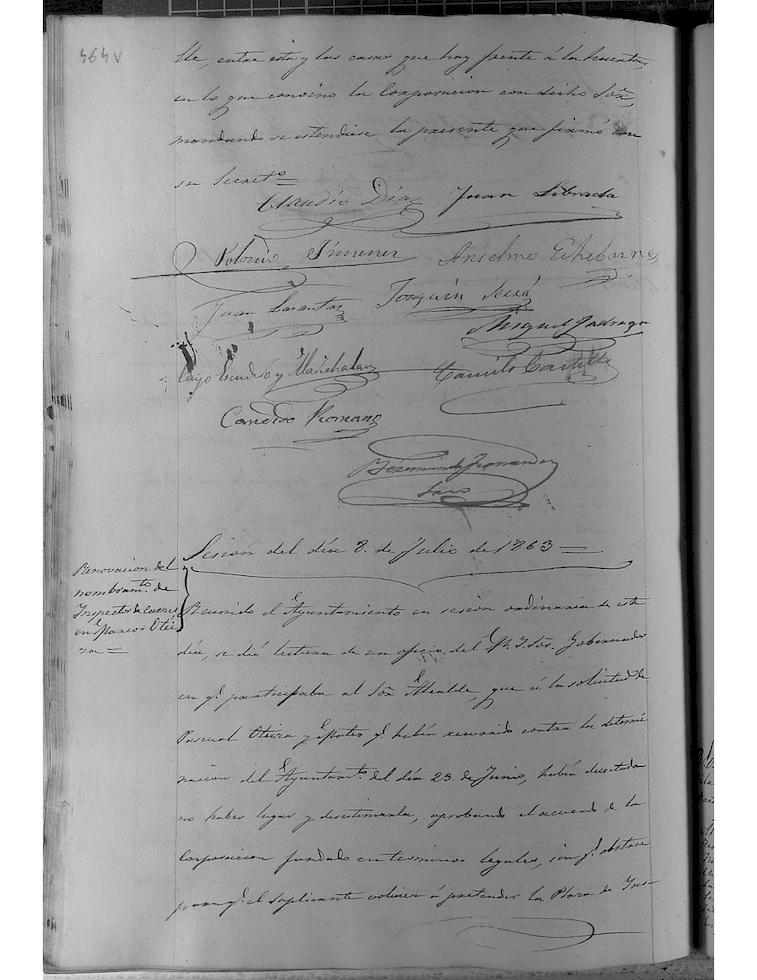 464 v
lle, entre esta y las casas que hay frente á la huerta,
en lo que convino la Corporacion con dicho Sor.,
mandando se estendiese la presente que firmó con
su Secretº =
Claudio Diaz Juan Librada
Polonio Jimenez Anselmo Echebarne
Juan Joaquin
Miguel
Cayo Escudero y Marichalar Camilo Castilla
Candido Romano
Fernandez
Sesion del dia 8. de Julio de 1863 =
Renovacion del
nombramtº. de
Inspector de carnes
en Marcos Otei
za =
Reunido el Ayuntamiento en sesion ordinaria de este
dia, se dió lectura de un oficio del M. I. Sor. Gobernador
en qe. participaba al Sor Alcalde, que á la solicitud de
Pascual Oteiza y Mateo qe. habia recurrido contra la determi
nacion del Ayuntamtº. del dia 23 de Junio, habia decretado
no haber lugar y desestimarla, aprobando el acuerdo de la
Corporacion fundado en terminos legales, sin qe. obstase
para qe. el suplicante volviera á pretender la Plaza de Ins-